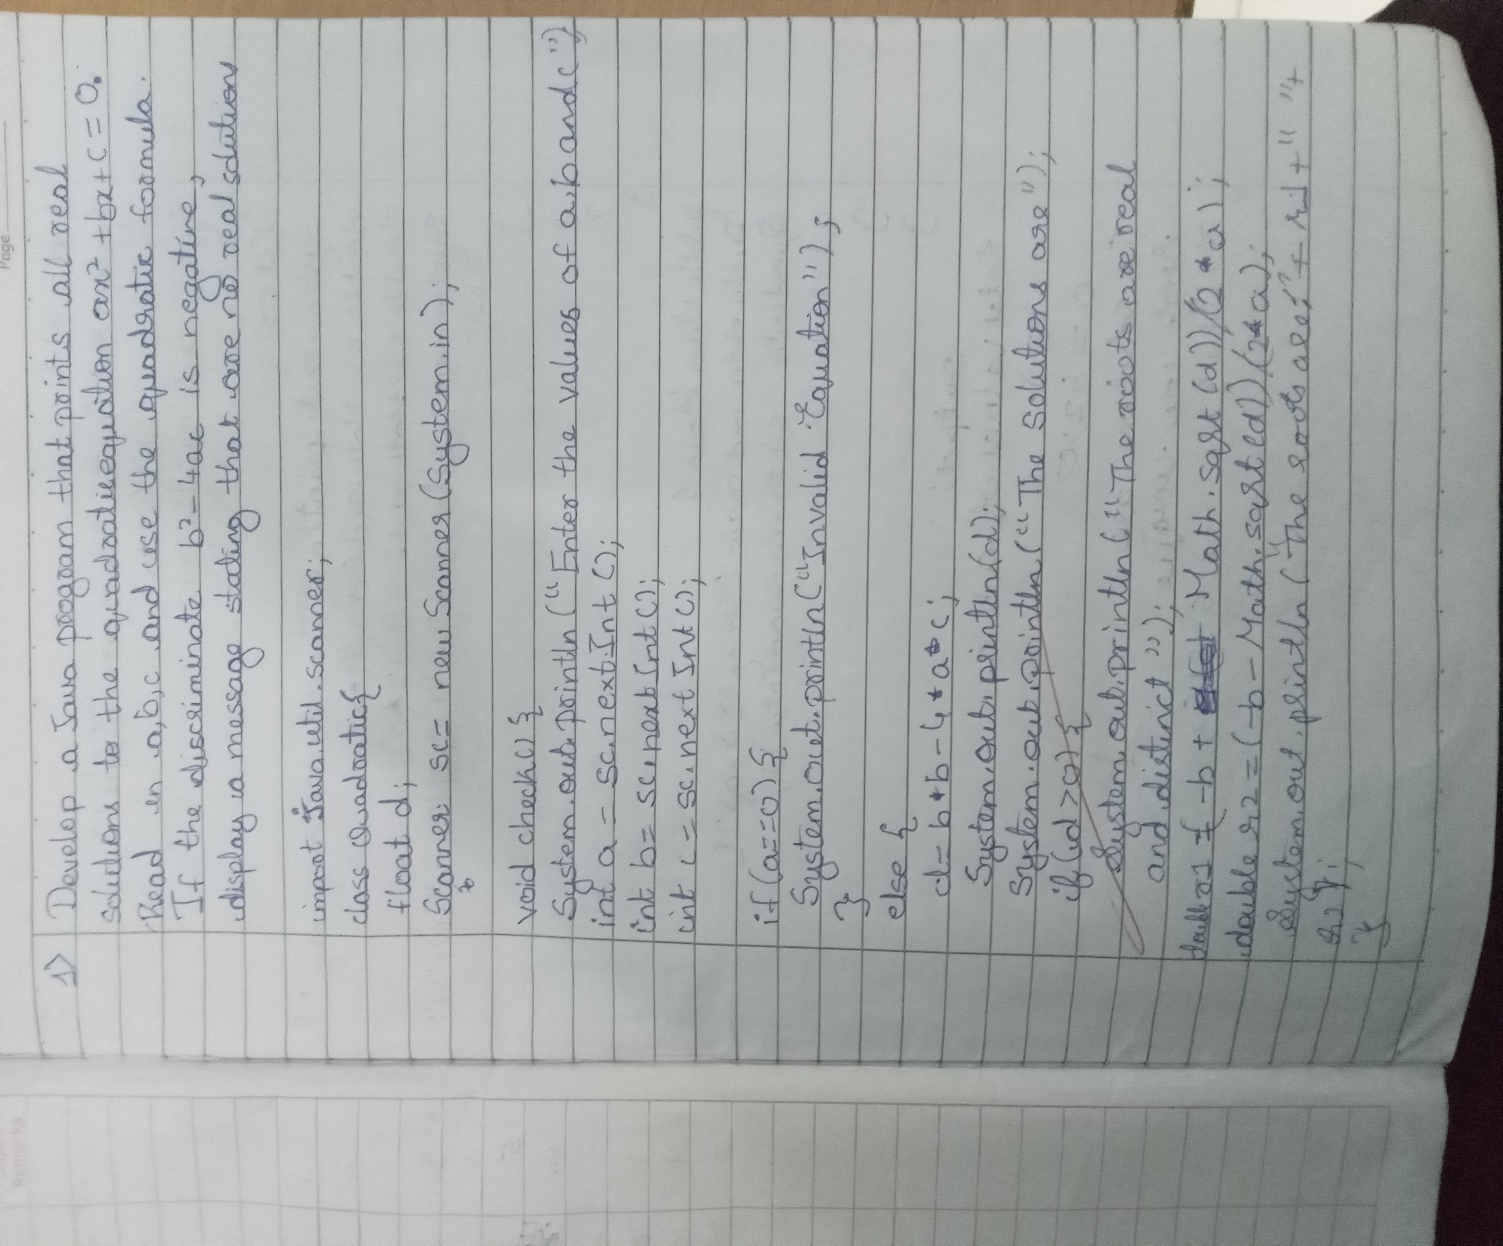 Page
1> Develop a Java program that prints all real
solutions to the quadratic equation ax² + bx + c = 0.
Read in a, b, c and use the quadratic formula.
If the discriminate b² - 4ac is negative,
display a message stating that are no real solutions
import java.util.scanner;
class Quadratic{
float d;
Scanner sc = new Scanner(System.in);
void check() {
System.out.println("Enter the values of a, b and c");
int a = sc.nextInt();
int b = sc.nextInt();
int c = sc.nextInt();
if (a==0) {
System.out.println("Invalid Equation");
}
else {
d = b*b-4*a*c;
System.out.println(d);
System.out.println("The solutions are");
if (d>0) {
System.out.println("The roots are real
and distinct");
double r1 = (-b + Math.sqrt(d))/(2*a);
double r2 = (-b - Math.sqrt(d))/(2*a);
System.out.println("The roots are:" + r1 + " " +
r2);
}